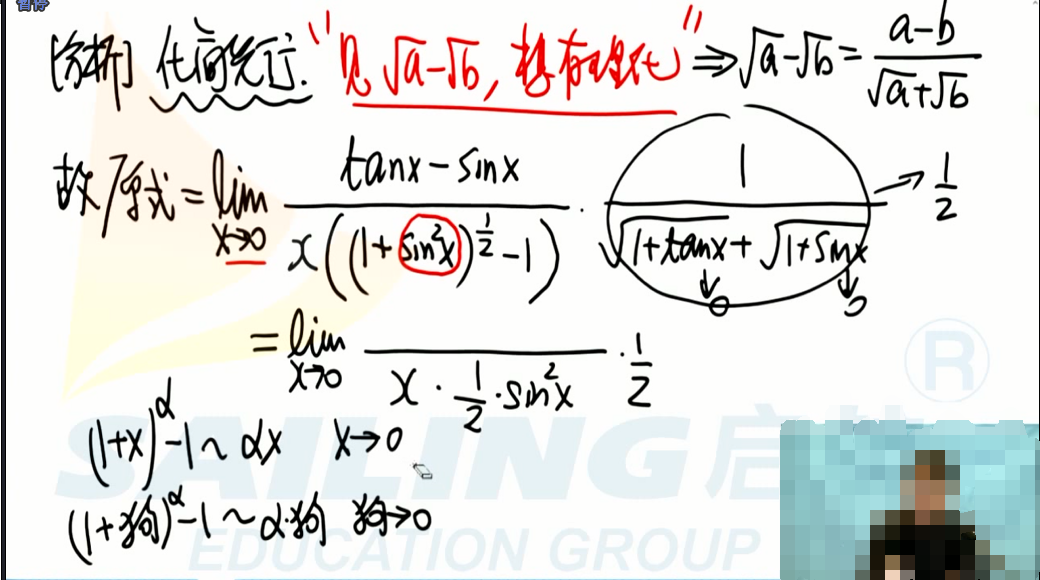 暂停
[分析] 化简先行. "见√a-√b, 想有理化" ⇒ √a-√b = (a-b)/(√a+√b)
故/原式 = lim x→0 (tanx-sinx)/(x((1+sin²x)^(1/2)-1)) · 1/(√(1+tanx)+√(1+sinx)) → 1/2
↓0 ↓0
= lim x→0 /(x·1/2·sin²x) · 1/2
(1+x)^α-1~αx x→0
(1+狗)^α-1~α·狗 狗→0
SAILING启航
®
EDUCATION GROUP